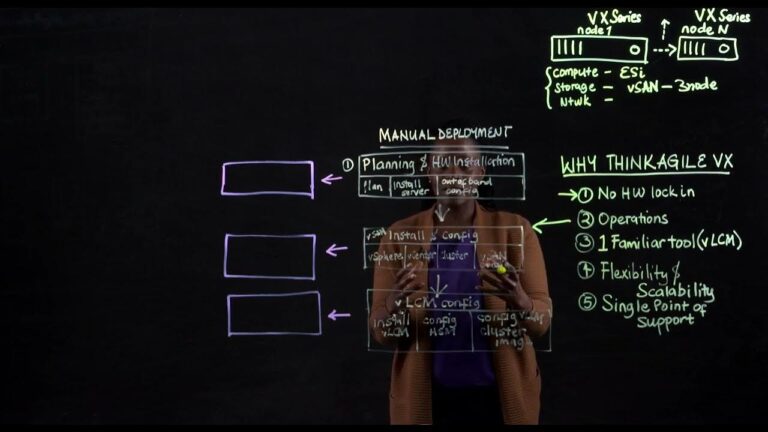 VX Series
node 1
VX Series
node N
compute - ESi
Storage - vSAN - 3node
Ntwk -
MANUAL DEPLOYMENT
① Planning & HW Installation
Plan
install server
out of band config
vSAN Install & Config
vSphere
vCenter
cluster
vLCM config
install vLCM
config HSM
config vLCM cluster image
WHY THINKAGILE VX
① No HW lock in
② Operations
③ 1 Familiar tool (vLCM)
④ Flexibility &
Scalability
⑤ Single Point of
support